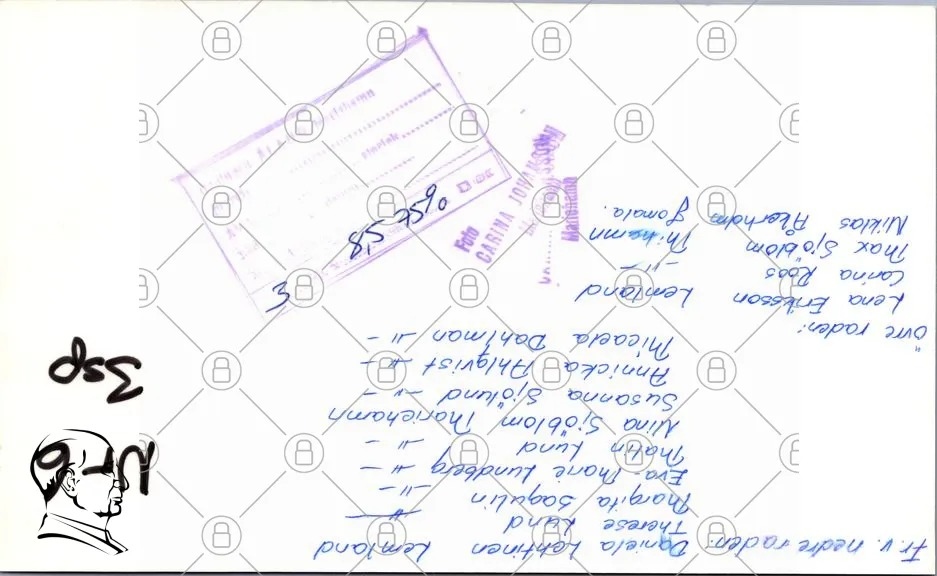 Fr. v. nedre raden: Daniela Lehtinen Lemland
Therese Lund -"-
Margita Sagulin -"-
Eva Marie Lundberg -"-
Malin Lund -"-
Nina Sjöblom Mariehamn
Susanna Sjölund -"-
Annicka Ahlqvist -"-
Micaela Dahlman -"-
övre raden:
Lena Eriksson Lemland
Carina Roos -"-
Max Sjöblom M:hamn
Niklas Åkerholm Jomala.
Foto
CARINA JOHANSSON
Mariehamn
3
8,5 75%
3sp